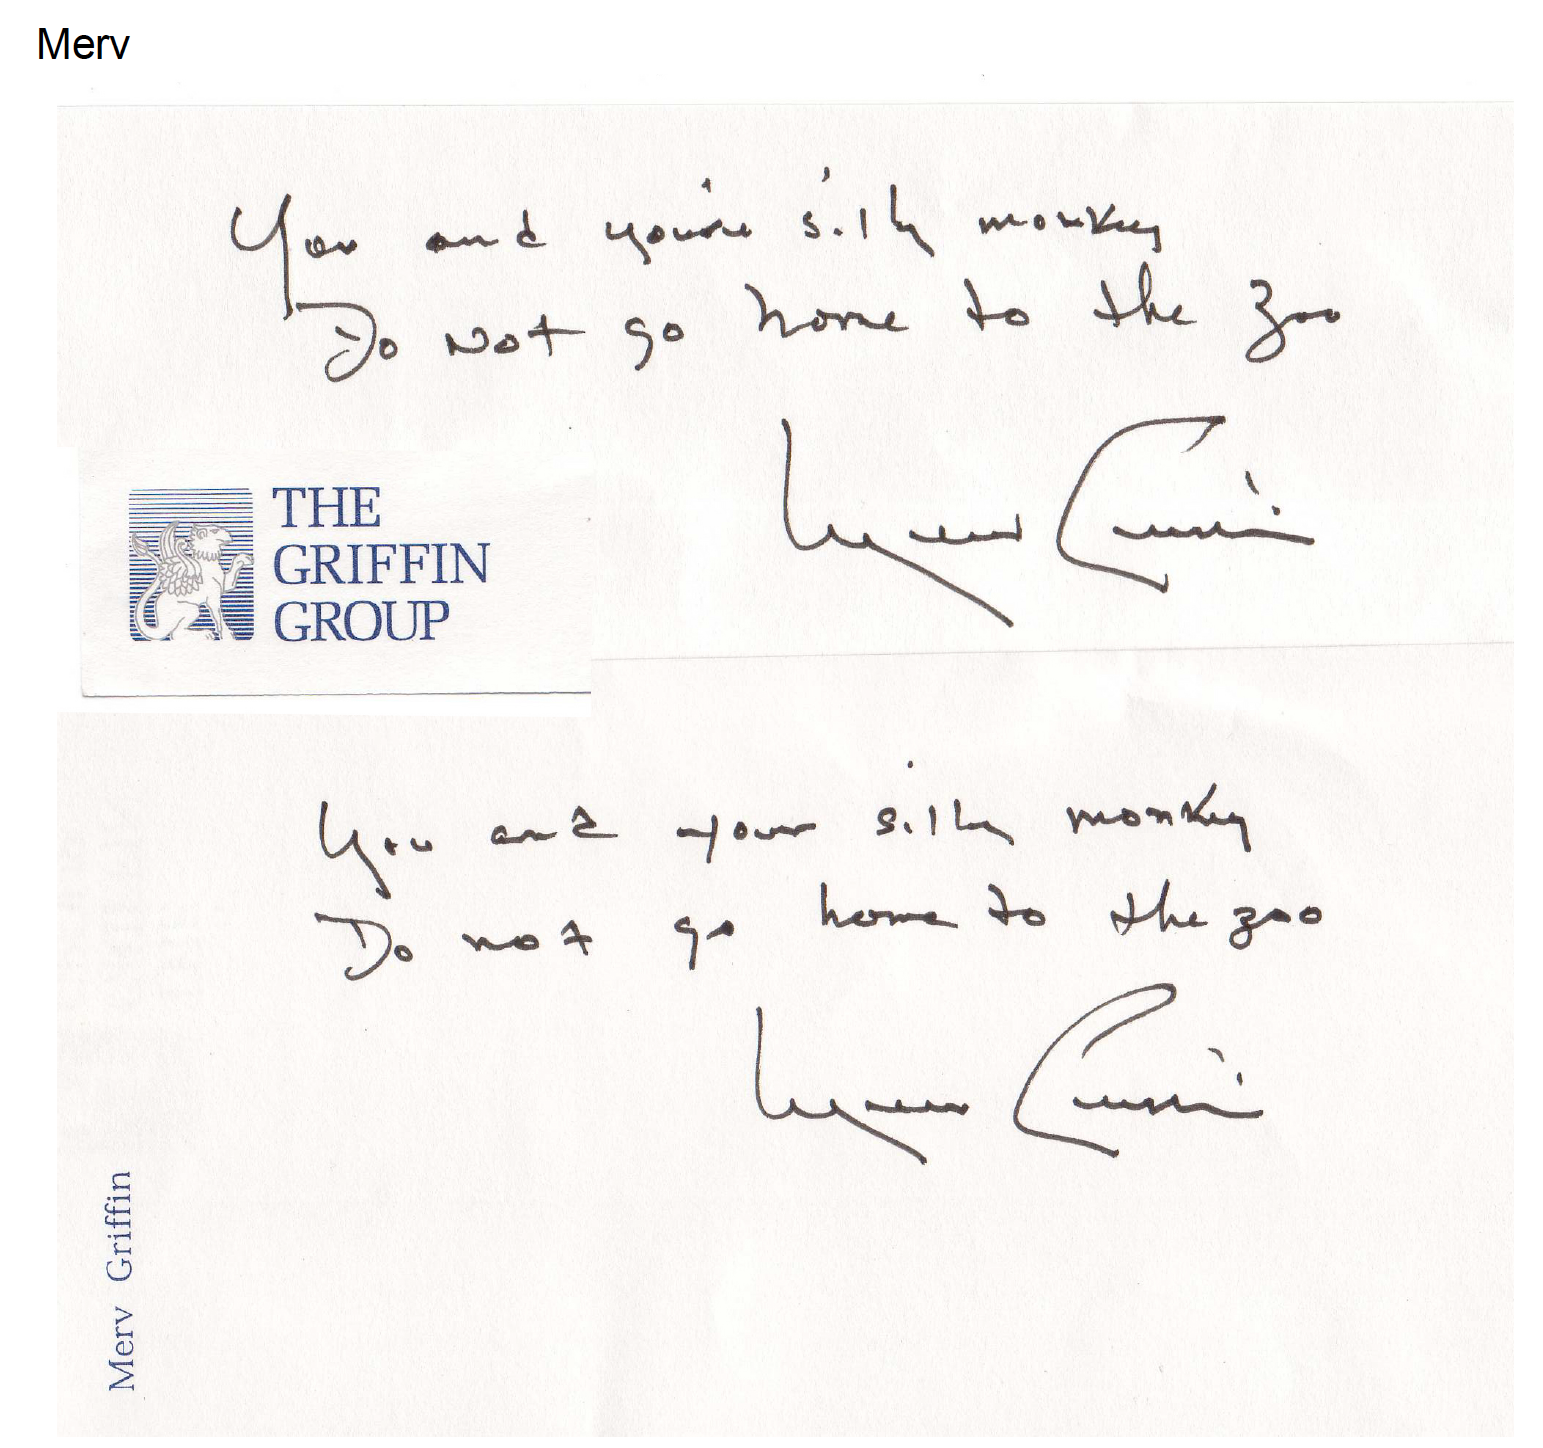 Merv
You and you're silly monkey
Do Not go home to the Zoo
Merv Griffin
THE
GRIFFIN
GROUP
You and your silly monkey
Do not go home to the zoo
Merv Griffin
Merv Griffin